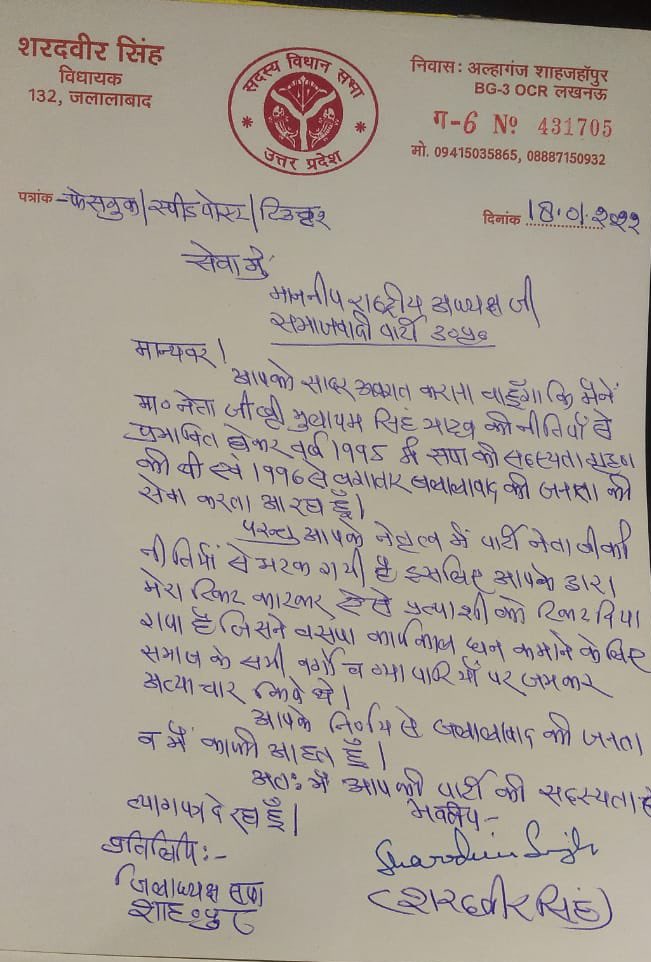 शरदवीर सिंह
विधायक
132, जलालाबाद
सदस्य विधान सभा
उत्तर प्रदेश
निवास: अल्हागंज शाहजहाँपुर
BG-3 OCR लखनऊ
ग-6 Nº 431705
मो. 09415035865, 08887150932
पत्रांक - फेसबुक/स्पीड पोस्ट/टिउटर
दिनांक 18.01.2022
सेवा में
माननीय राष्ट्रीय अध्यक्ष जी
समाजवादी पार्टी उ०प्र०
मान्यवर!
आपको सादर अवगत कराना चाहूँगा कि मैनें
मा० नेता जी श्री मुलायम सिंह यादव की नीतियों से
प्रभावित होकर वर्ष 1995 में सपा की सदस्यता ग्रहण
की थी एवं 1996 से लगातार जलालाबाद की जनता की
सेवा करता आ रहा हूँ।
परन्तु आपके नेतृत्व में पार्टी नेता जी की
नीतियों से भटक गयी है इसलिए आपके द्वारा
मेरा टिकट काटकर ऐसे प्रत्याशी को टिकट दिया
गया है जिसने बसपा कार्यकाल धन कमाने के लिए
समाज के सभी वर्गो व व्यापारियों पर जमकर
अत्याचार किये थे।
आपके निर्णय से जलालाबाद की जनता
व मैं काफी आहत हूँ।
अतः मैं आपकी पार्टी की सदस्यता से
त्यागपत्र दे रहा हूँ।
भवदीय-
प्रतिलिपि:-
जिलाध्यक्ष सपा
शाह०पुर
(शरदवीर सिंह)